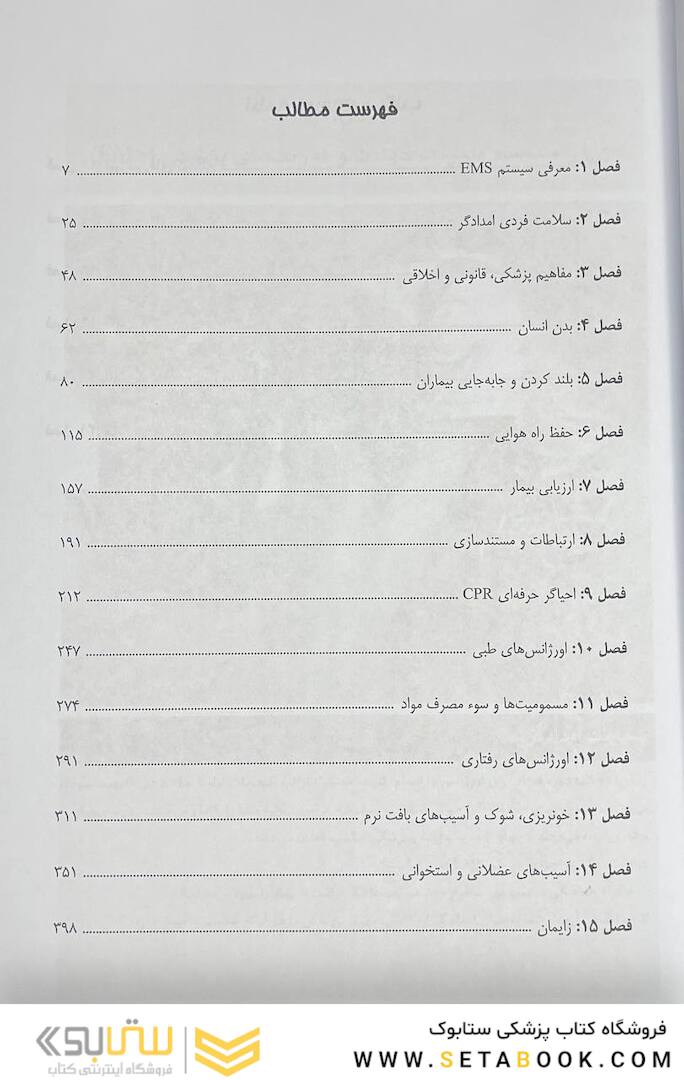 فهرست مطالب
فصل ۱: معرفی سیستم EMS ........ ۷
فصل ۲: سلامت فردی امدادگر ........ ۲۵
فصل ۳: مفاهیم پزشکی، قانونی و اخلاقی ........ ۴۸
فصل ۴: بدن انسان ........ ۶۲
فصل ۵: بلند کردن و جابه‌جایی بیماران ........ ۸۰
فصل ۶: حفظ راه هوایی ........ ۱۱۵
فصل ۷: ارزیابی بیمار ........ ۱۵۷
فصل ۸: ارتباطات و مستندسازی ........ ۱۹۱
فصل ۹: احیاگر حرفه‌ای CPR ........ ۲۱۲
فصل ۱۰: اورژانس‌های طبی ........ ۲۴۷
فصل ۱۱: مسمومیت‌ها و سوء مصرف مواد ........ ۲۷۴
فصل ۱۲: اورژانس‌های رفتاری ........ ۲۹۱
فصل ۱۳: خونریزی، شوک و آسیب‌های بافت نرم ........ ۳۱۱
فصل ۱۴: آسیب‌های عضلانی و استخوانی ........ ۳۵۱
فصل ۱۵: زایمان ........ ۳۹۸
فروشگاه کتاب پزشکی ستابوک
WWW.SETABOOK.COM
ستابوک
فروشگاه اینترنتی کتاب